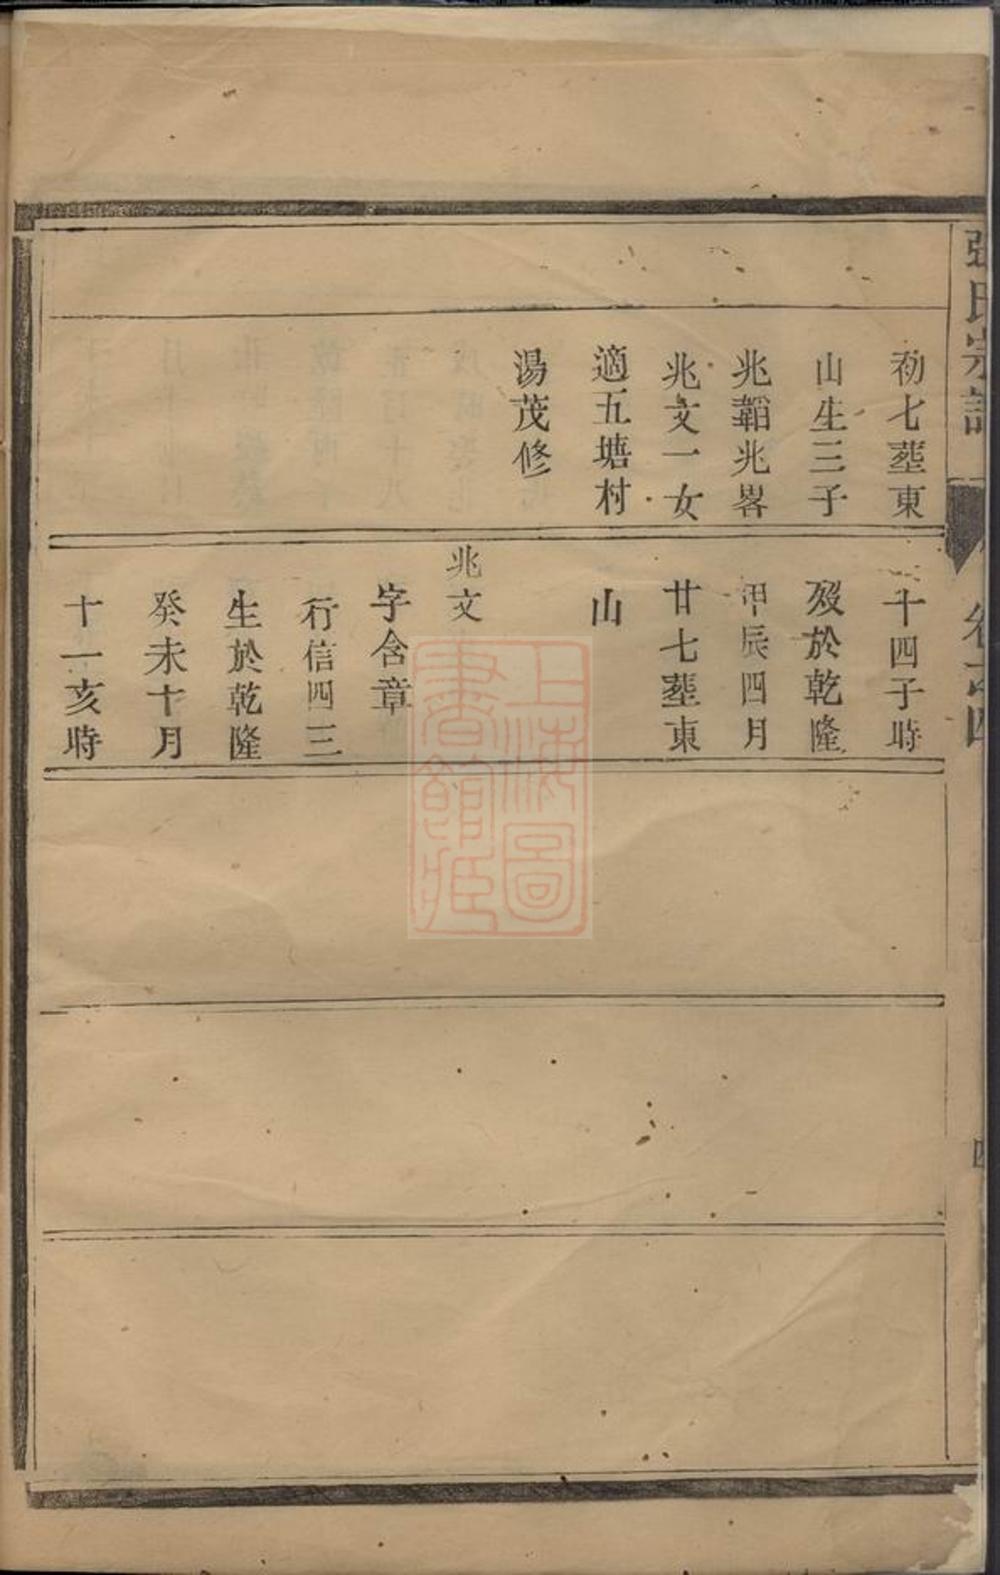 張氏宗譜
初七塟東
山生三子
兆韜兆畧
兆文一女
適五塘村
湯茂修
十四子時
歿於乾隆
甲辰四月
廿七塟東
山
兆文
字含章
行信四三
生於乾隆
癸未十月
十一亥時
上海圖
書館藏